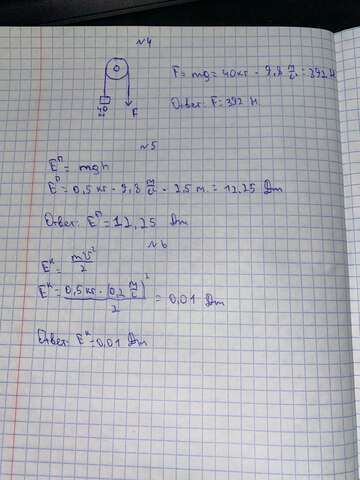 №4
F = mg = 40 кг · 9,8 м/с = 392 Н
40 кг
F
Ответ: F = 392 Н.
№5
Eᴨ = mgh
Eᴨ = 0,5 кг · 9,8 м/с · 25 м. = 12,25 Дж
Ответ: Eᴨ = 12,25 Дж
№6
Eᴷ = mV²/2
Eᴷ = 0,5 кг · (0,2 м/с)²/2 = 0,01 Дж
Ответ: Eᴷ = 0,01 Дж